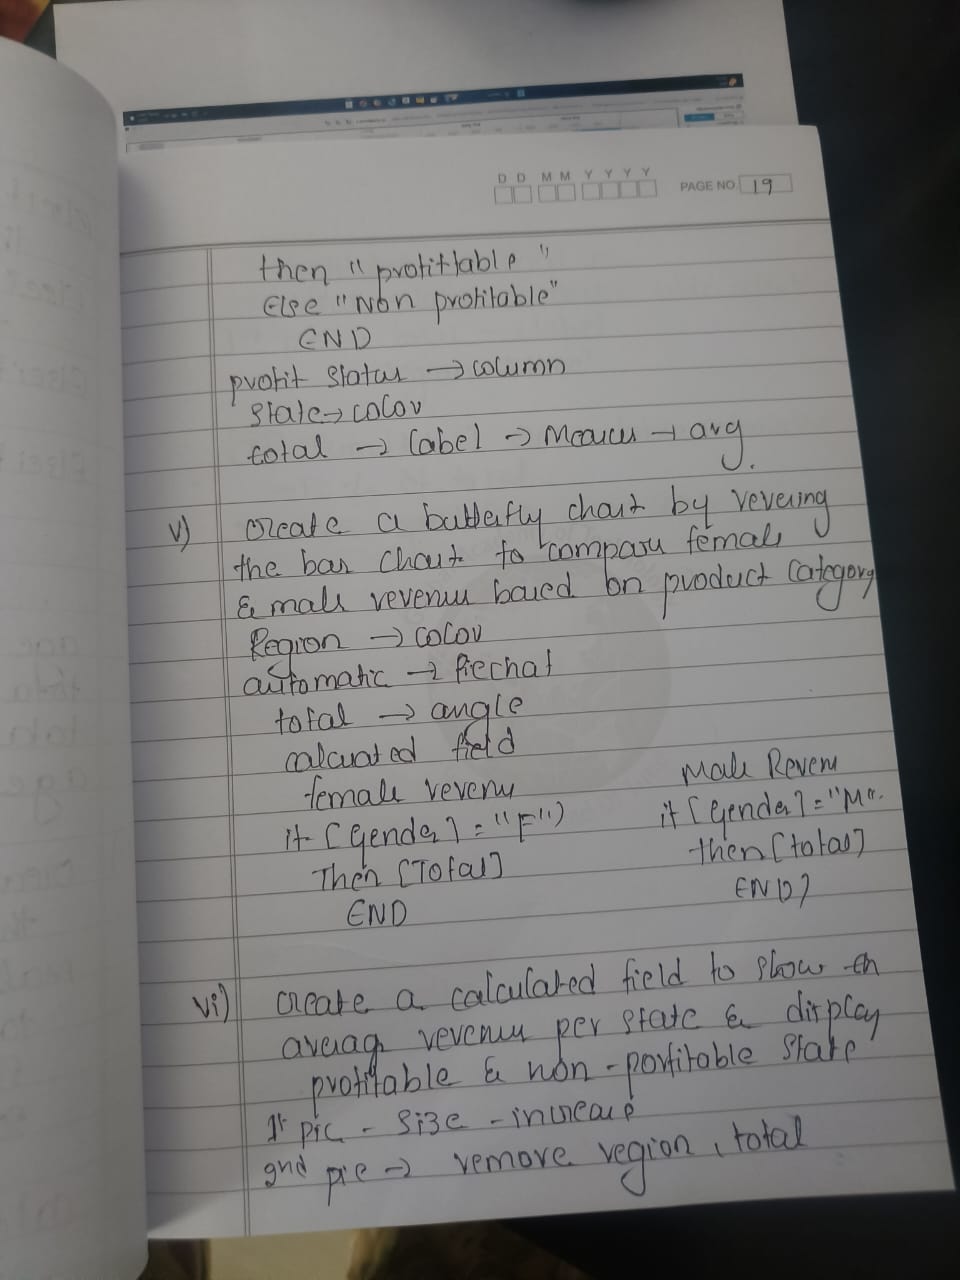 D D M M Y Y Y Y PAGE NO. 19
then "profittable"
Else "Non profitable"
END
profit status → column
State → color
total → label → → avg.
v) create a butterfly chart by
the bar chart to compare female
& male revenue based on product category
Region → color
automatic → piechat
total → angle
calcuated field
female reveny
if [Gender] = "F")
Then [Total]
END
Male Reven
if [Gender] = "M".
then [total]
END)
vi) create a calculated field to show th
averag revenue per state & display
profitable & non-porfitable state
1st pic - size - increase
2nd pie → remove region, total